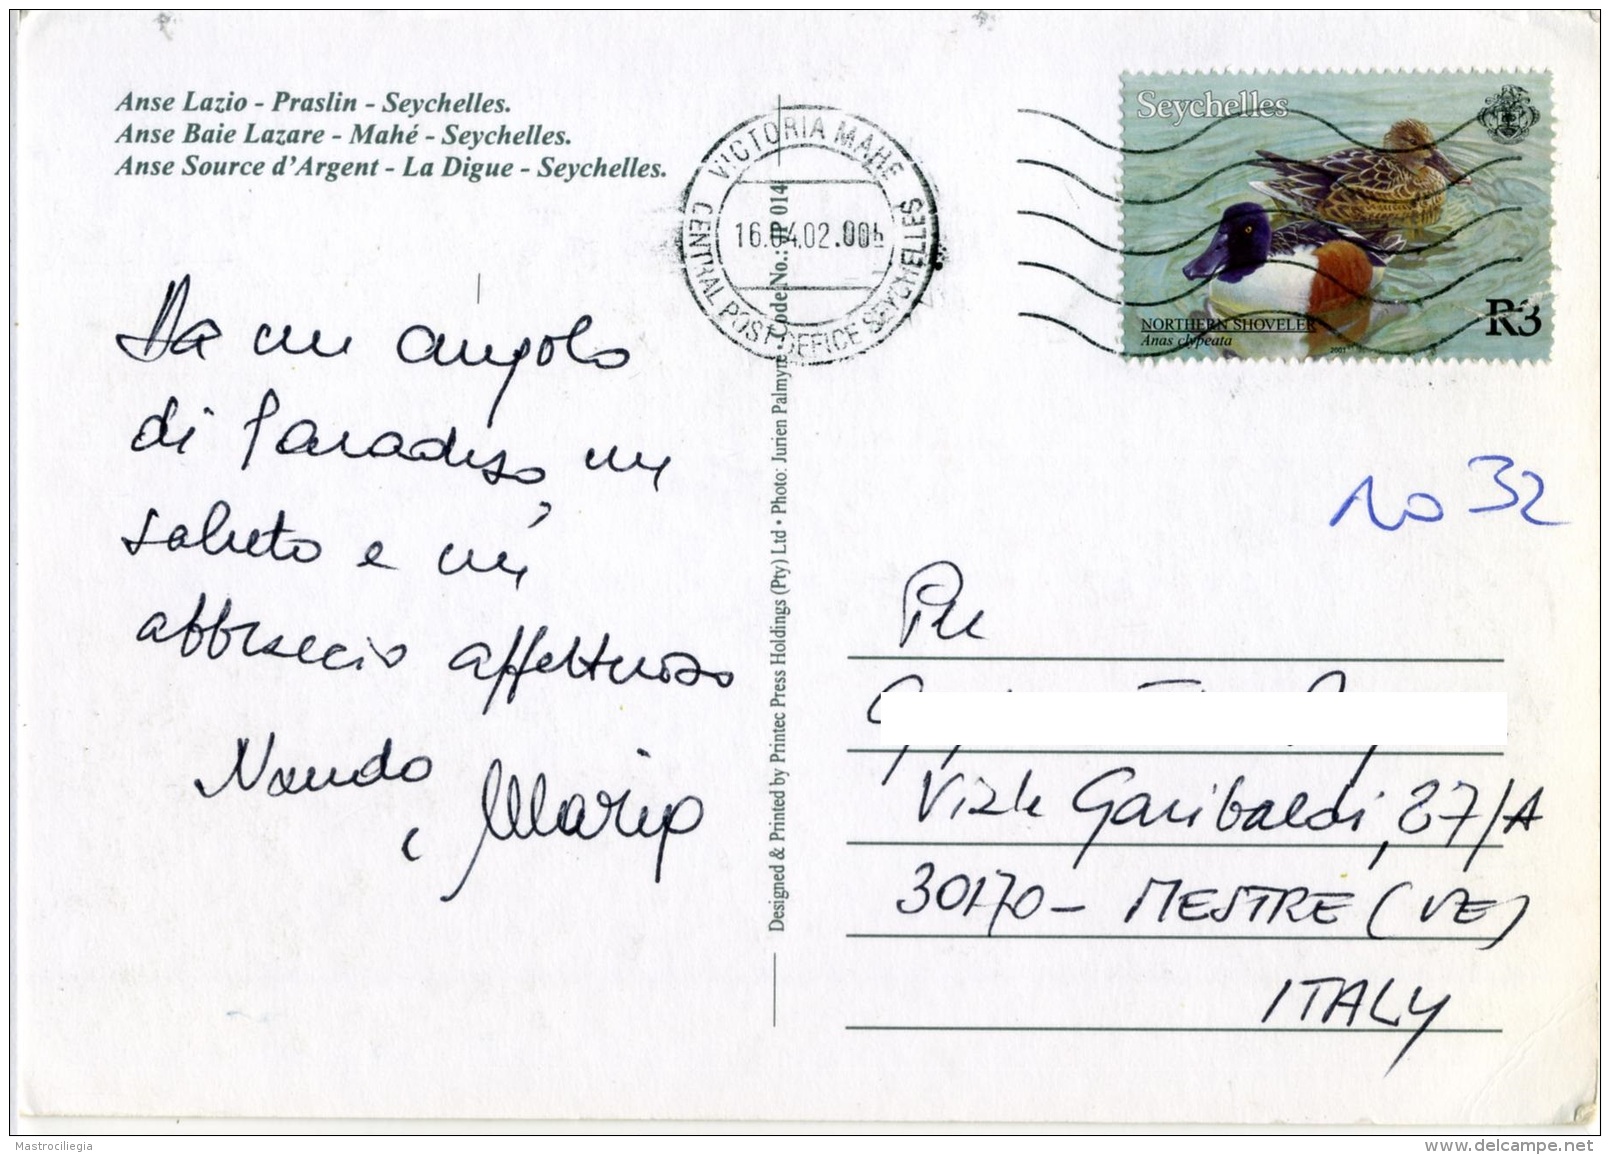 Anse Lazio - Praslin - Seychelles.
Anse Baie Lazare - Mahé - Seychelles.
Anse Source d'Argent - La Digue - Seychelles.
VICTORIA MAHE SEYCHELLES
16.04.02.00h
CENTRAL POST OFFICE
Seychelles
NORTHERN SHOVELER
Anas clypeata
2001
R3
Da un angolo
di Paradiso, un
saluto e un
abbraccio affettuoso
Nando,
Mario
Designed & Printed by Printec Press Holdings (Pty) Ltd • Photo: Jurien Palmyre Code No.: VP 014
32
Viale Garibaldi, 87/A
30170 - MESTRE (VE)
ITALY
Mastrociliegia
www.delcampe.net